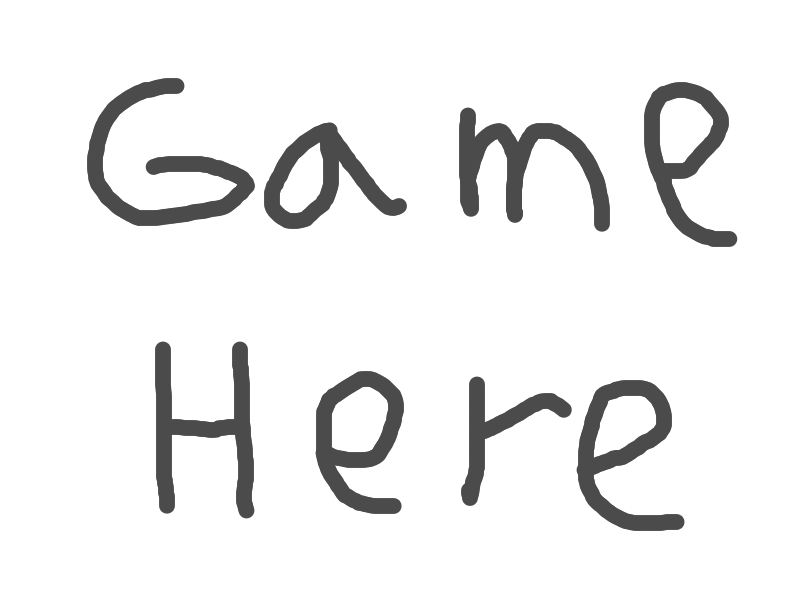 Game
Here